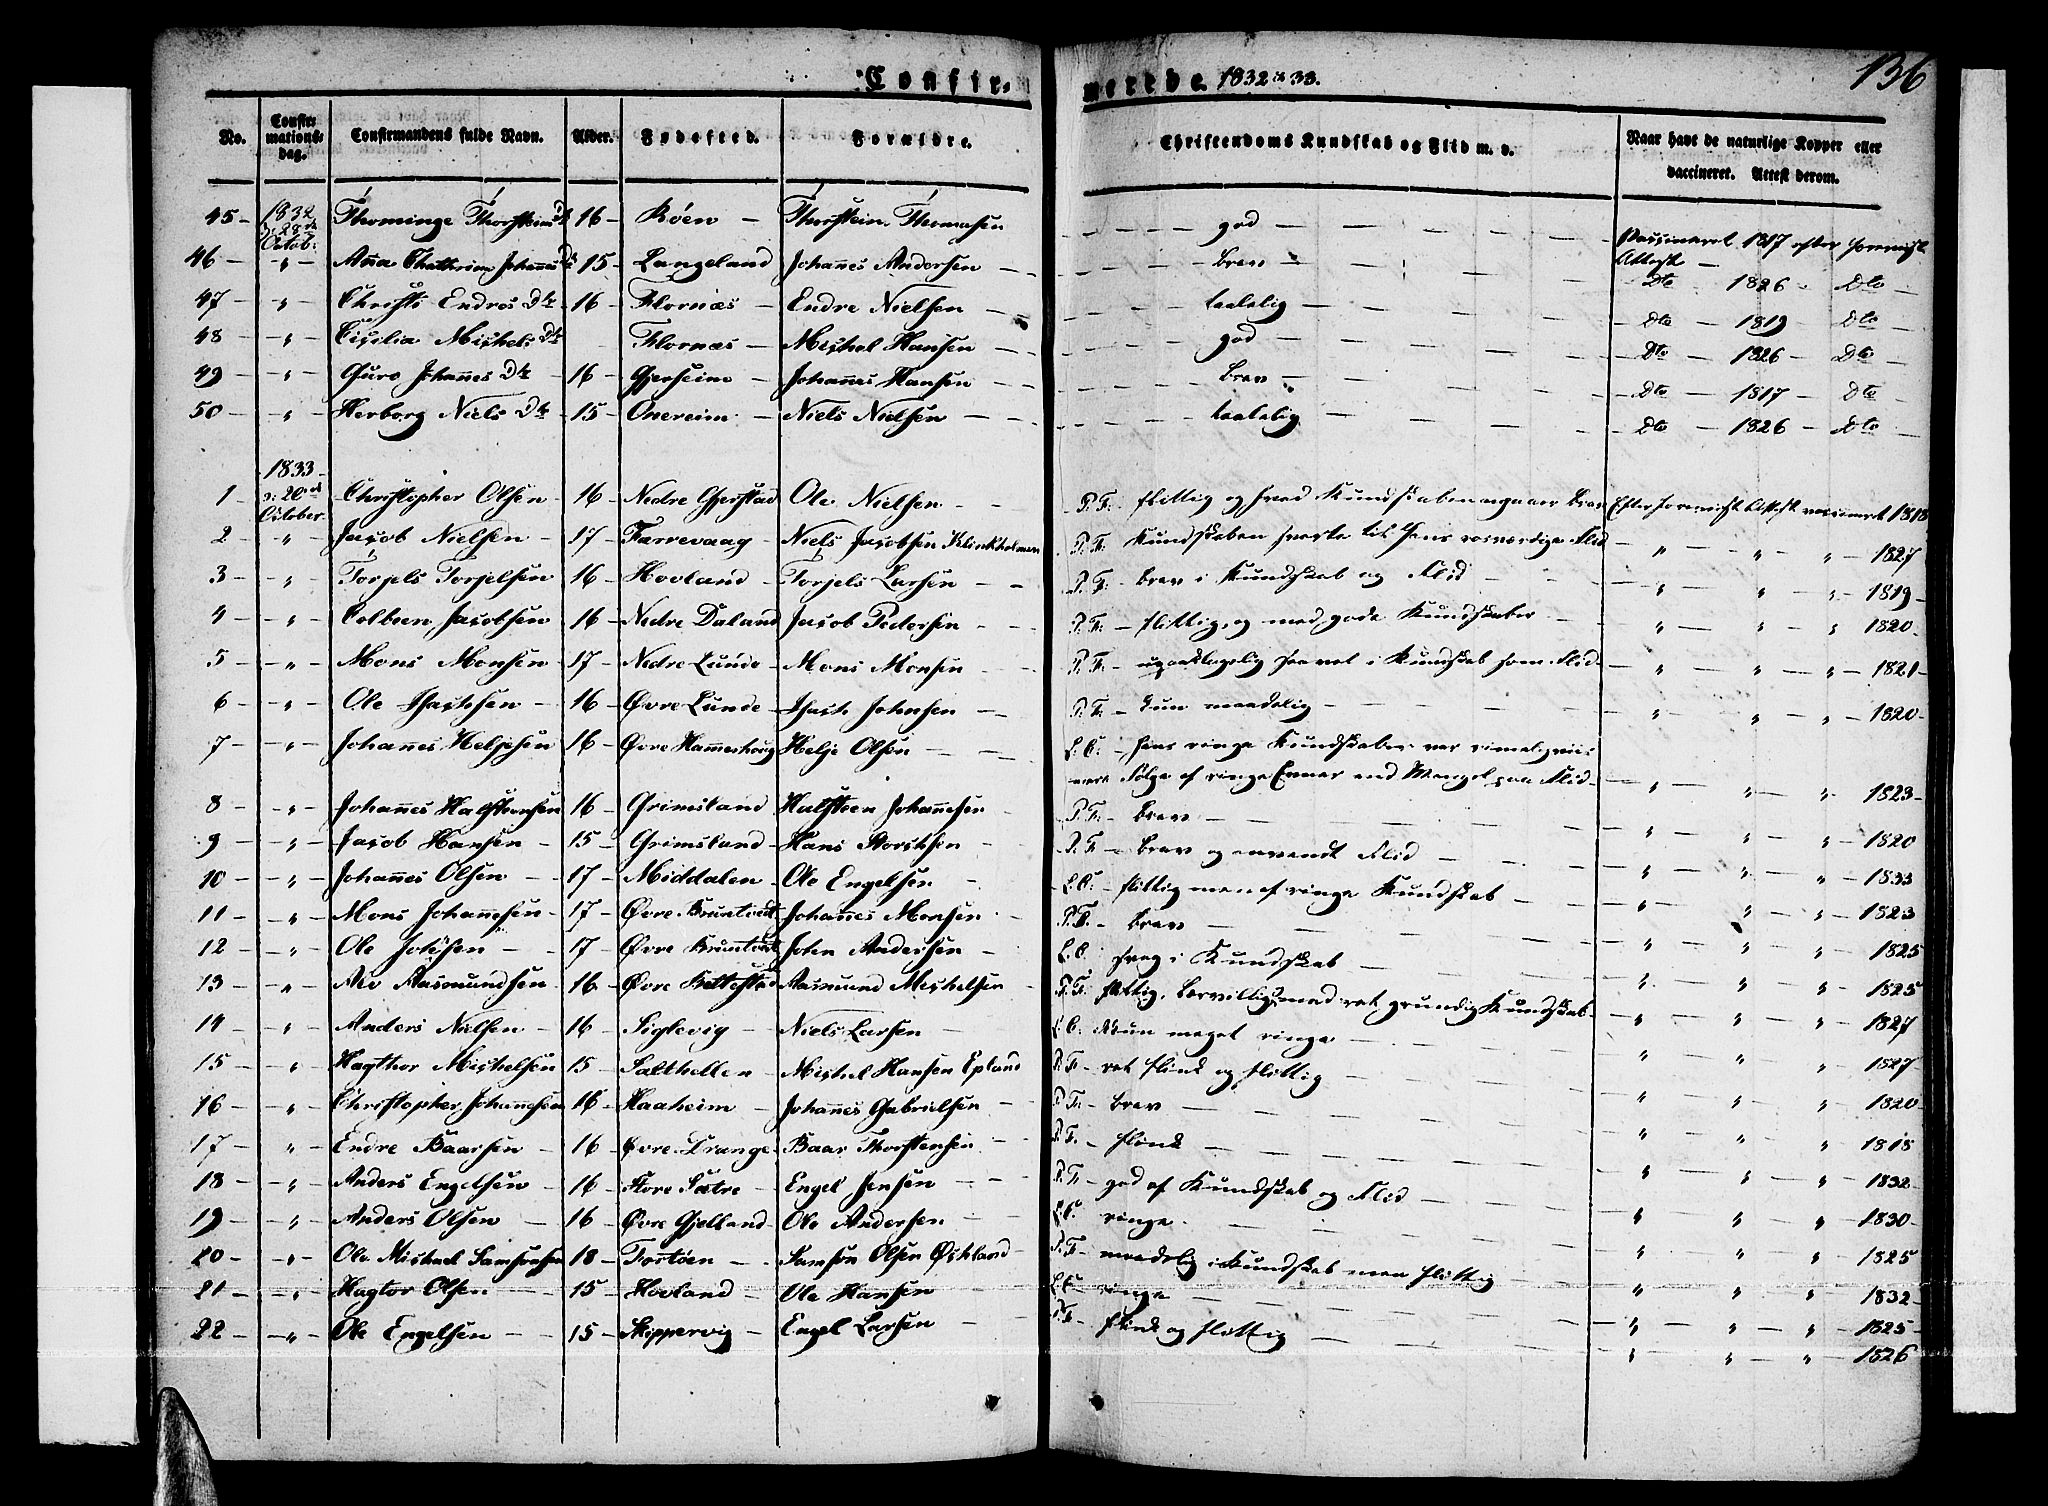 136
Confirmerede 1832 & 33.
No. Confirmationsdag. Confirmandens fulde Navn. Alder. Fødested. Forældre. Christendoms Kundskab og Flid m. v. Naar havt de naturlige Kopper eller vaccineret. Attest derom.
45 - 1832 d: 28de Octob: Thominge Thorsteins Dtr 16 - Röen - Thorstein Thomasen - god - Vaccineret 1817 efter forevist Attest
46 - " - Anna Chatherina Johannes Dtr 15 - Langeland Johannes Andersen - brav - Dto - 1826 - Dto
47 - " - Christi Endres Dtr 16 - Flornæs - Endre Nielsen - taalelig - Dto - 1819 - Dto
48 - " - Cicelia Michels Dtr Flornæs - Michel Hansen - god - Dto - 1826 - Dto
49 - " - Guro Johannes Dtr - 16 - Gjerseim - Johannes Hansen - brav - Dto - 1817 - Dto
50 - " - Herborg Niels Dtr 15 - Onereim - Niels Nielsen - taalelig - Dto - 1826 - Dto
1833
1 - d: 20de October Christopher Olsen - 16 - Nedre Gjerstad Ole Nielsen - P. F. - flittig og hvad Kundskaben angaaer brav Efter forevist Attest vaccineret 1818
2 - " - Jacob Nielsen - 17 - Færrevaag - Niels Jacobsen Klinkholmen P. F. Kundskaben svarte til hans rosværdige Flid - " - " - " - 1827
3 - " - Torjels Torjelsen 16 - Hovland - Torjels Larsen - P. F. - brav i Kundskab og Flid - " - " - " - 1819
4 - " - Colbeen Jacobsen 16 - Nedre Daland Jacob Pedersen - P. F. - flittig, og med gode Kundskaber - " - " - " 1820
5 - " - Mons Monsen 17 - Nedre Lunde - Mons Monsen - P. F. - upaaklagelig saavel i Kundskab som Flid - " - " - " - 1821
6 - " - Ole Isachsen - 16 - Øvre Lunde - Isach Johnsen - P. F. - kun maadelig - " - " - " - 1820
7 - " - Johannes Heljesen 16 - Øvre Hammerhoug Helje Olsen - L. C. - hans ringe Kundskaber var rimeligviis
mere Følge af ringe Evner end Mangel paa Flid - " - " - " - 1823
8 - " - Johannes Halsteensen 16 - Grimsland - Halsteen Johannesen P. F. - brav - " - " - " - 1820
9 - " - Jacob Hansen - 15 - Grimsland - Hans Storchsen - P. F. - brav og anvendt Flid - " - " - " - 1833
10 - " - Johannes Olsen - 17 - Middalen - Ole Engelsen - L. C. - flittig men af ringe Kundskab - " - " - " - 1823
11 - " - Mons Johannesen - 17 - Øvre Bruntvedt Johannes Monsen - P. F. - brav - " - " - " - 1825
12 - " - Ole Johnsen - 17 - Øvre Bruntvedt John Andersen - L. C. svag i Kundskab - " - " - " - 1825
13 - " - Aasmundsen 16 - Øvre Aasmund Michelsen - P. F. flittig, lærvillig med ret grundig Kundskab - " - " - " - 1827
14 - " - Anders Nielsen - 16 - Siglevig - Niels Larsen - L. C. Kun meget ringe - " - " - " - 1827
15 - " - Hagthor Michelsen 15 - Salthellen - Michel Hansen Epland P. F. - ret flink og flittig - " - " - " - 1820
16 - " - Christopher Johannesen 16 - Haaheim - Johannes Gabrielsen - P. F. - brav - " - " - " - 1818
17 - " - Endre Baarsen - 16 - Øvre Drange - Baar Thorstensen - P. F. - flink - " - " - " - 1832
18 - " - Anders Engelsen - 16 - Store Sætre - Engel Jensen - P. F. - god af Kundskab og Flid - " - " - " - 1830
19 - " - Anders Olsen - 16 - Øvre Gjelland - Ole Andersen - L. C. ringe - " - " - " - 1825
20 - " - Ole Michael Samsonsen 18 - Fortöen - Samson Olsen Øchland - P. F. - maadelig i Kundskab men flittig - " - " - " - 1832
21 - " - Hagtor Olsen - 15 - Hovland - Ole Hansen - L. C. - ringe - " - " - " - 1825
22 - " - Ole Engelsen - 15 - Skippervig - Engel Larsen - P. F. - flink og flittig - " - " - " - 1826